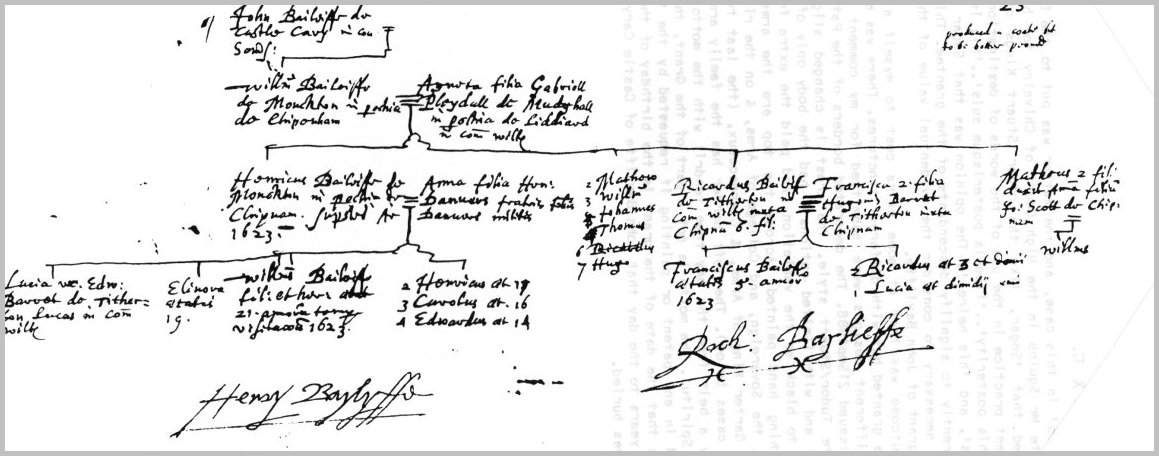 John Bailiffe de
Castle Cary in com
Somst:
23
produced a coate but
to be better proved
willm Bailiffe
de Monckton in pochia
de Chipenham
Agneta filia Gabriell
Pleydall de Mudghall
in pochia de Liddiard
in com wilts
Henricus Bailiffe de
Monckton in pochia de
Chipnam. supstes Ao
1623.
Anna filia Hen:
Danvers fratris
Danvers militis
2 Mathew
3 willm
4 Johannes
5 Thomas
6 Ricardus
7 Hugo
Ricardus Bailiffe
de Titherton in
Com wilts iuxta
Chipnā 6. fil:
Francisca 2. filia
Hugonis Barret
de Titherton iuxta
Chipnam
Matheus 2 fili:
duxit Anā filiā
Jo: Scott de Chip:
nam
willmus
Lucia ux. Edm:
Barret de Tither=
ton Lucas in Com
wilts
Elinora
aetatis
19.
willm Bailiffe
fili: et heres aet
21 annorū tempe
visitacois 1623.
2 Henricus aet. 17
3 Carolus aet. 16
4 Edwardus aet 14
Franciscus Bailiffe
aetatis 5. annor
1623
2 Ricardus aet 3 et dimi
1 Lucia aet dimidij
Henry Baylyffe
Rich: Baylieffe